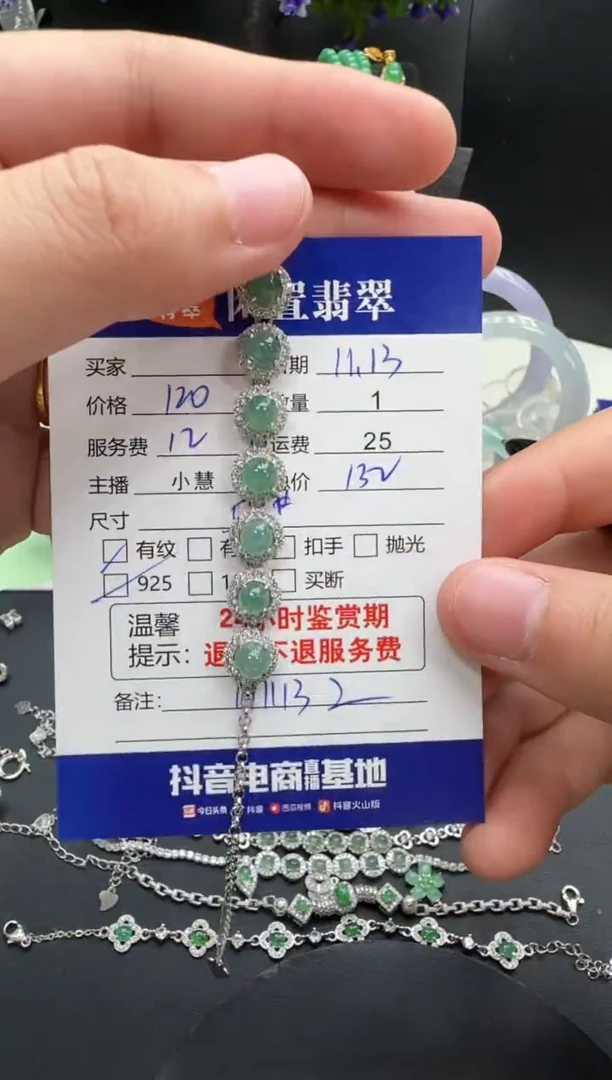 翡翠
买家 期 11.13
价格 120 量 1
服务费 12 运费 25
主播 小慧 价 132
尺寸
有纹 扣手 抛光
925 买断
温馨 2 小时鉴赏期
提示: 退 不退服务费
备注: 11113 2
抖音电商直播基地
今日头条 抖音 西瓜视频 抖音火山版